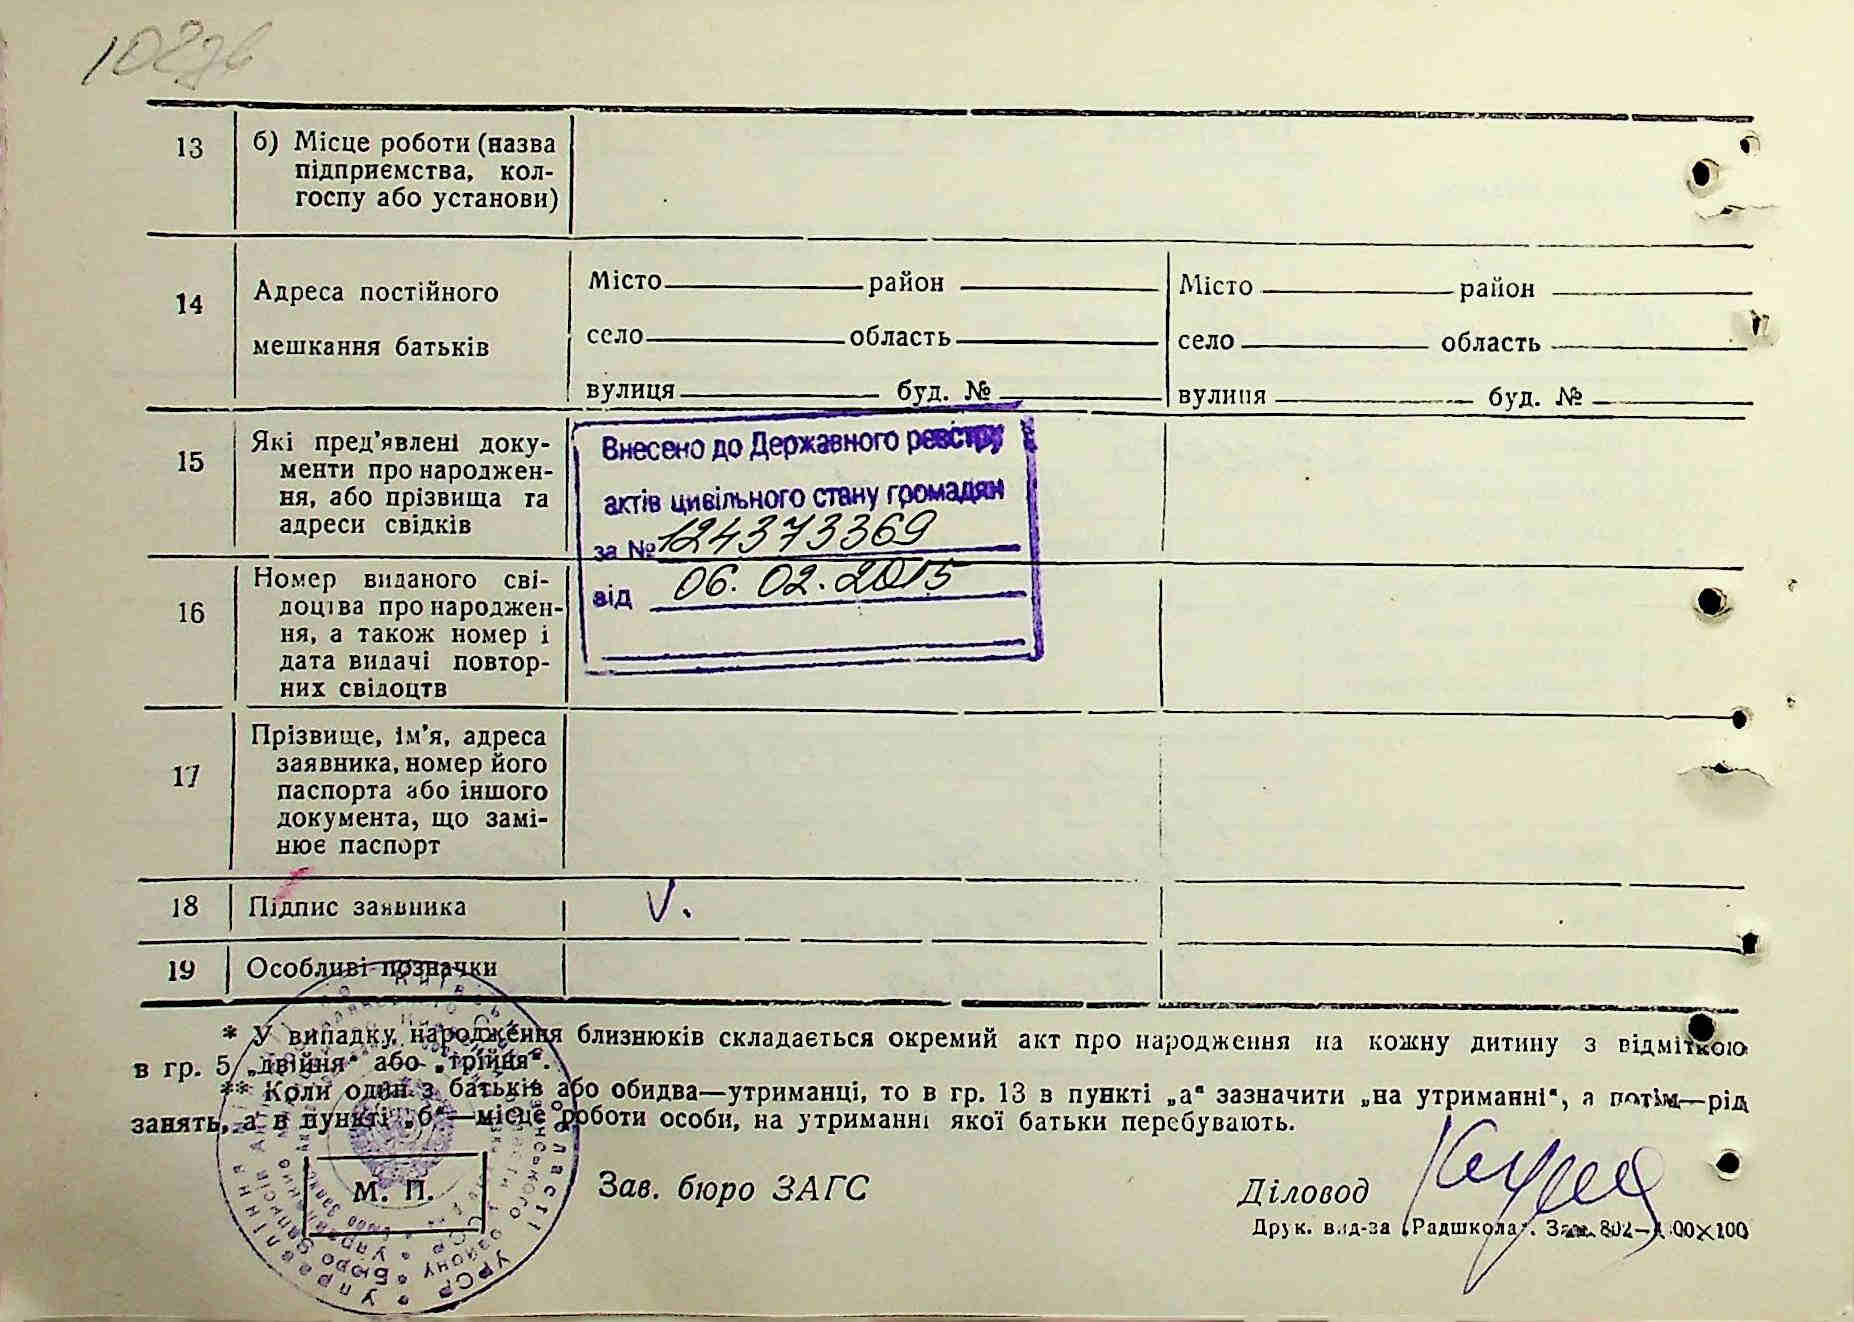 13
б) Місце роботи (назва
підприємства, кол-
госпу або установи)
14
Адреса постійного
мешкання батьків
Місто район
село область
вулиця буд. №
Місто район
село область
вулиця буд. №
15
Які пред’явлені доку-
менти про народжен-
ня, або прізвища та
адреси свідків
Внесено до Державного реєстру
актів цивільного стану громадян
за № 124373369
від 06.02.2015
16
Номер виданого сві-
доцтва про народжен-
ня, а також номер і
дата видачі повтор-
них свідоцтв
17
Прізвище, ім’я, адреса
заявника, номер його
паспорта або іншого
документа, що замі-
нює паспорт
18
Підпис заявника
V.
19
Особливі позначки
* У випадку народження близнюків складається окремий акт про народження на кожну дитину з відміткою
в гр. 5 „двійня“ або „трійня“.
** Коли один з батьків або обидва—утриманці, то в гр. 13 в пункті „а“ зазначити „на утриманні“, а потім—рід
занять, а в пункті „б“—місце роботи особи, на утриманні якої батьки перебувають.
М. П.
Зав. бюро ЗАГС
Діловод
Друк. вид-за „Радшкола“. Зам. 802